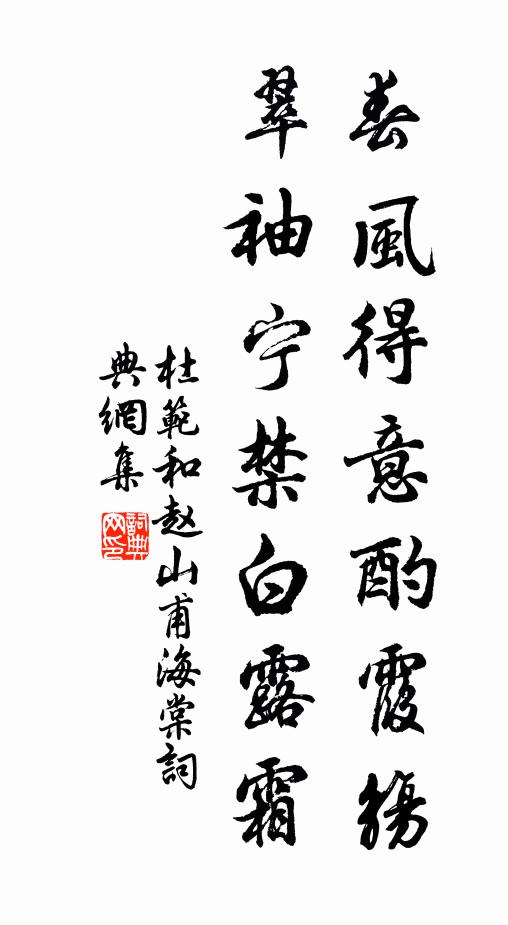 春風得意酌霞觴
翠袖宁禁白露霜
杜範和赵山甫海棠詞
典網集
詞典網印